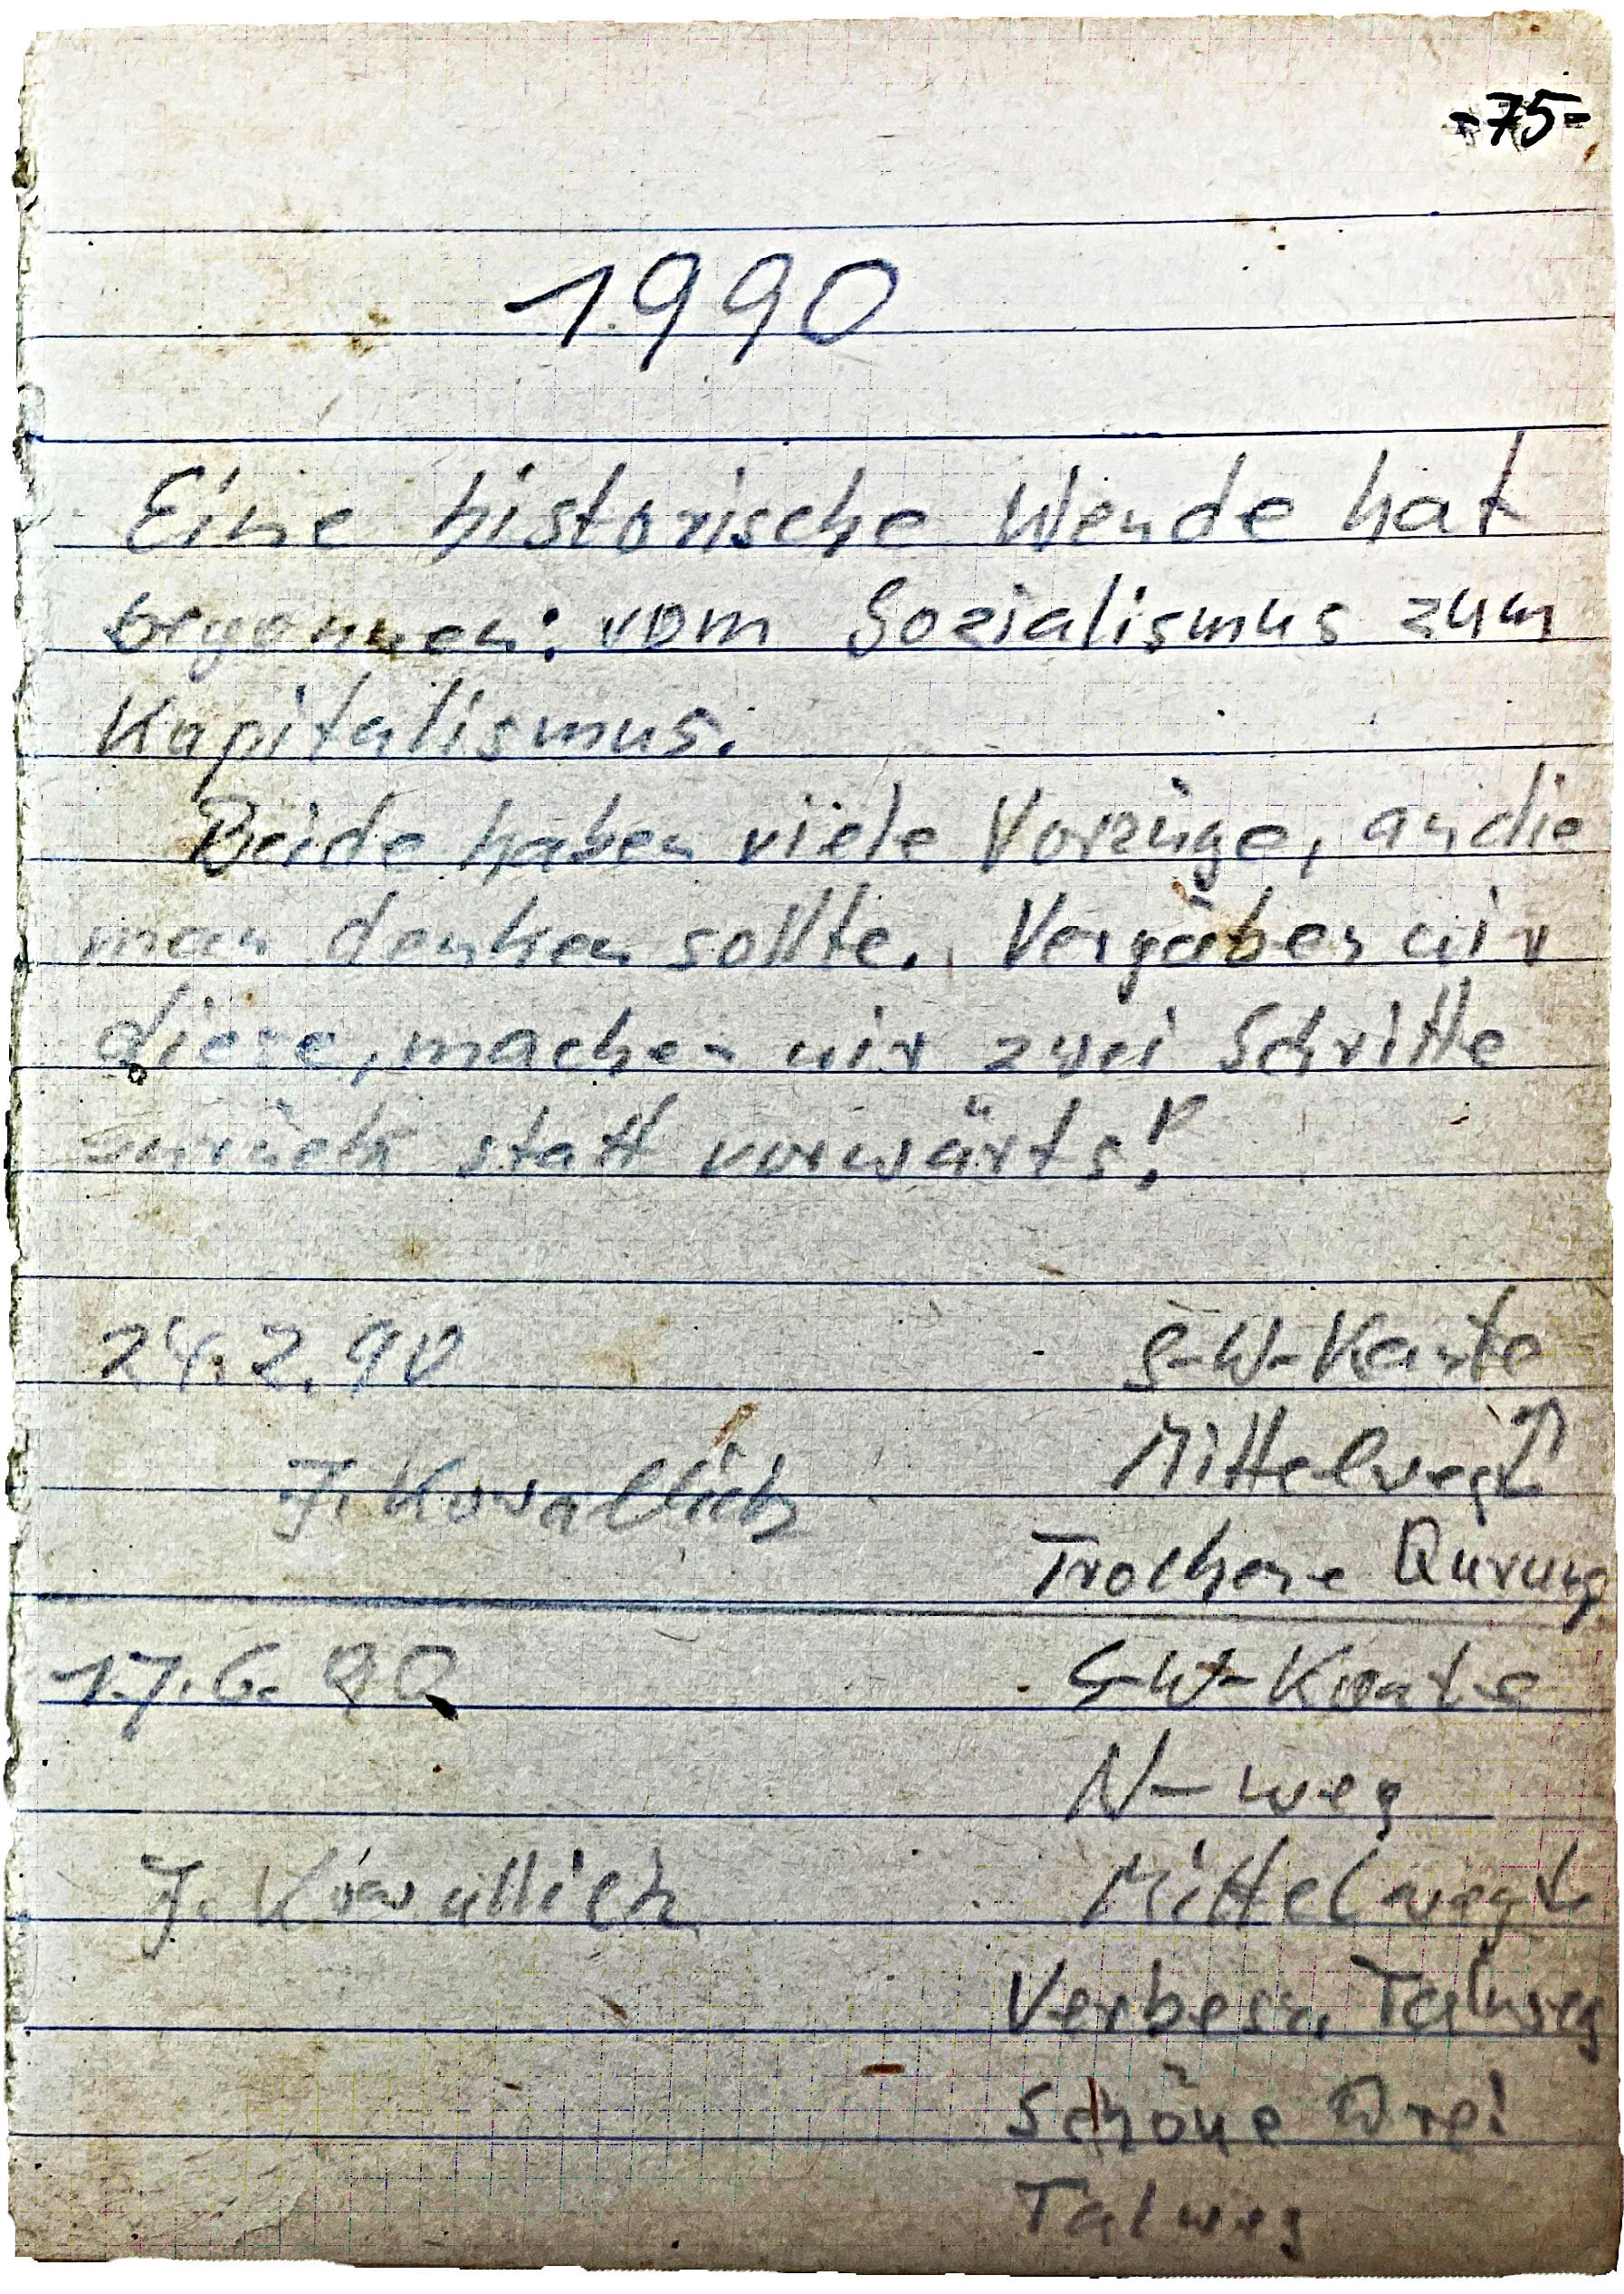 -75-
1990
Eine historische Wende hat
begonnen: vom Sozialismus zum
Kapitalismus.
Beide haben viele Vorzüge, an die
man denken sollte. Vergäßen wir
diese, machen wir zwei Schritte
zurück statt vorwärts!
24.2.90 S-W-Kante
Mittelweg ↑
J. Kowallick
Trockene Querung
17.6.90 S-W-Kante
N-weg
J. Kowallick Mittelweg
Verbess. Talweg
Schöne Drei
Talweg